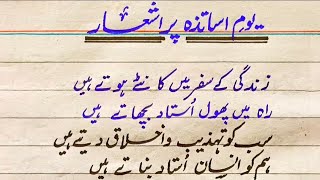 یومِ اساتذہ پر اشعار
زندگی کے سفر میں کانٹے ہوتے ہیں
راہ میں پھول اُستاد بچھاتے ہیں
سب کو تہذیب و اخلاق دیتے ہیں
ہم کو انسان اُستاد بناتے ہیں